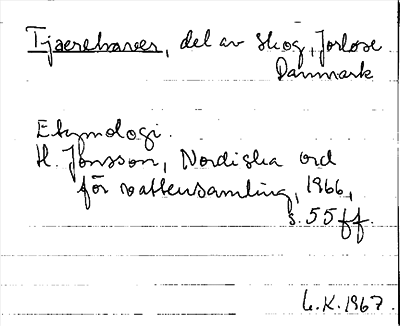 Tjaerehaver, del av skog, Jorløse
Danmark
Etymologi.
H. Jonsson, Nordiska ord
för vattensamling, 1966,
s. 55 ff.
L.K. 1967.